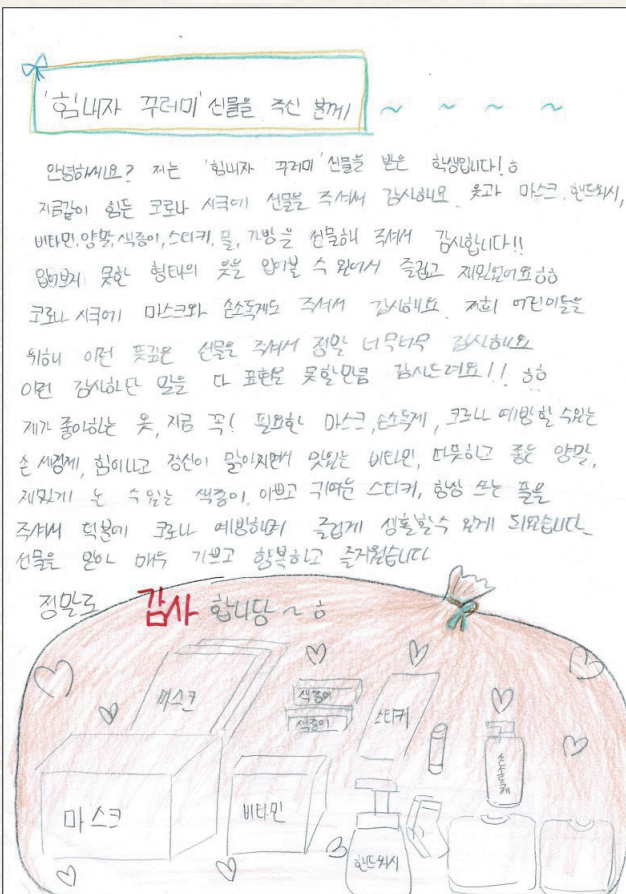 '힘내자 꾸러미' 선물을 주신 분께! ~ ~ ~ ~
안녕하세요? 저는 '힘내자 꾸러미' 선물을 받은 학생입니다!ㅎ
지금같이 힘든 코로나 시국에 선물을 주셔서 감사해요. 옷과 마스크, 핸드워시,
비타민, 양말, 색종이, 스티커, 풀, 가방을 선물해 주셔서 감사합니다!!
입어보지 못한 형태의 옷을 입어볼 수 있어서 즐겁고 재밌었어요ㅎㅎ
코로나 시국에 마스크와 손소독제도 주셔서 감사해요. 저희 어린이들을
위해 이런 뜻깊은 선물을 주셔서 정말 너무너무 감사해요
이런 감사하단 말을 다 표현을 못할만큼 감사드려요!! ㅎㅎ
제가 좋아하는 옷, 지금 꼭! 필요한 마스크, 손소독제, 코로나 예방할 수있는
손 세정제, 힘이나고 정신이 맑아지면서 맛있는 비타민, 따뜻하고 좋은 양말,
재밌게 논 수있는 색종이, 이쁘고 귀여운 스티커, 항상 쓰는 풀을
주셔서 덕분에 코로나 예방하며 즐겁게 생활할수 있게 되었습니다.
선물을 받아 매우 기쁘고 행복하고 즐거웠습니다
정말로 감사 합니당 ~ ㅎ
마스크
색종이
색종이
스티커
손소독제
마스크
비타민
핸드워시